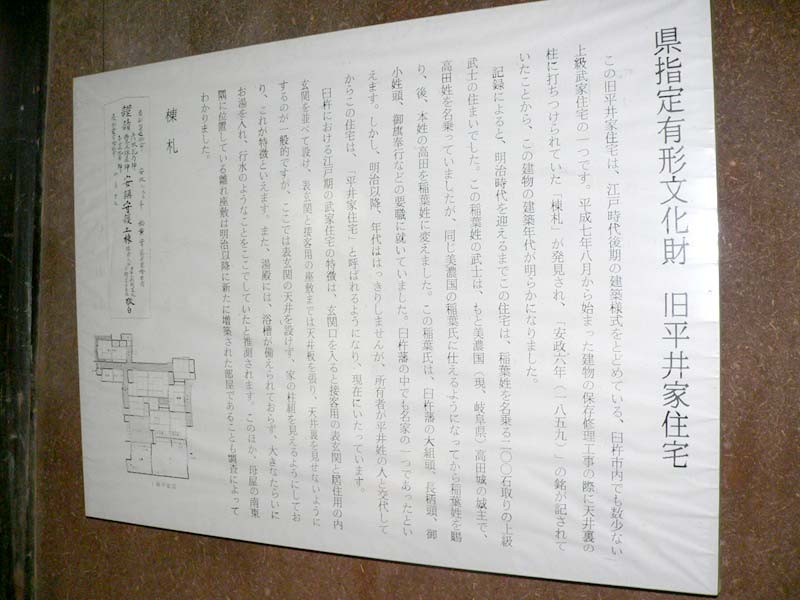 県指定有形文化財　旧平井家住宅
この旧平井家住宅は、江戸時代後期の建築様式をとどめている、臼杵市内でも数少ない
上級武家住宅の一つです。平成七年八月から始まった建物の保存修理工事の際に天井裏の
柱に打ちつけられていた「棟札」が発見され、「安政六年（一八五九）」の銘が記されて
いたことから、この建物の建築年代が明らかになりました。
記録によると、明治時代を迎えるまでこの住宅は、稲葉姓を名乗る二〇〇石取りの上級
武士の住まいでした。この稲葉姓の武士は、もと美濃国（現、岐阜県）高田城の城主で、
高田姓を名乗っていましたが、同じ美濃国の稲葉氏に仕えるようになってから稲葉姓を賜
り、後、本姓の高田を稲葉姓に変えました。この稲葉氏は、臼杵藩の大組頭、長柄頭、御
小姓頭、御旗奉行などの要職に就いていました。臼杵藩の中でもお家の一つであったとい
えます。しかし、明治以降、年代ははっきりしませんが、所有者が平井姓の人と交代して
からこの住宅は、「平井家住宅」と呼ばれるようになり、現在にいたっています。
臼杵における江戸期の武家住宅の特徴は、玄関口を入ると接客用の表玄関と居住用の内
玄関を並べて設け、表玄関と接客用の座敷までは天井板を張り、天井裏を見せないように
するのが一般的ですが、ここでは表玄関の天井を設けず、家の柱組を見えるようにしてお
り、これが特徴といえます。また、湯殿には、浴槽が備えられておらず、大きなたらいに
お湯を入れ、行水のようなことをここでしていたと推測されます。このほか、母屋の南東
隅に位置している離れ座敷は明治以降に新たに増築された部屋であることも調査によって
わかりました。
棟　札